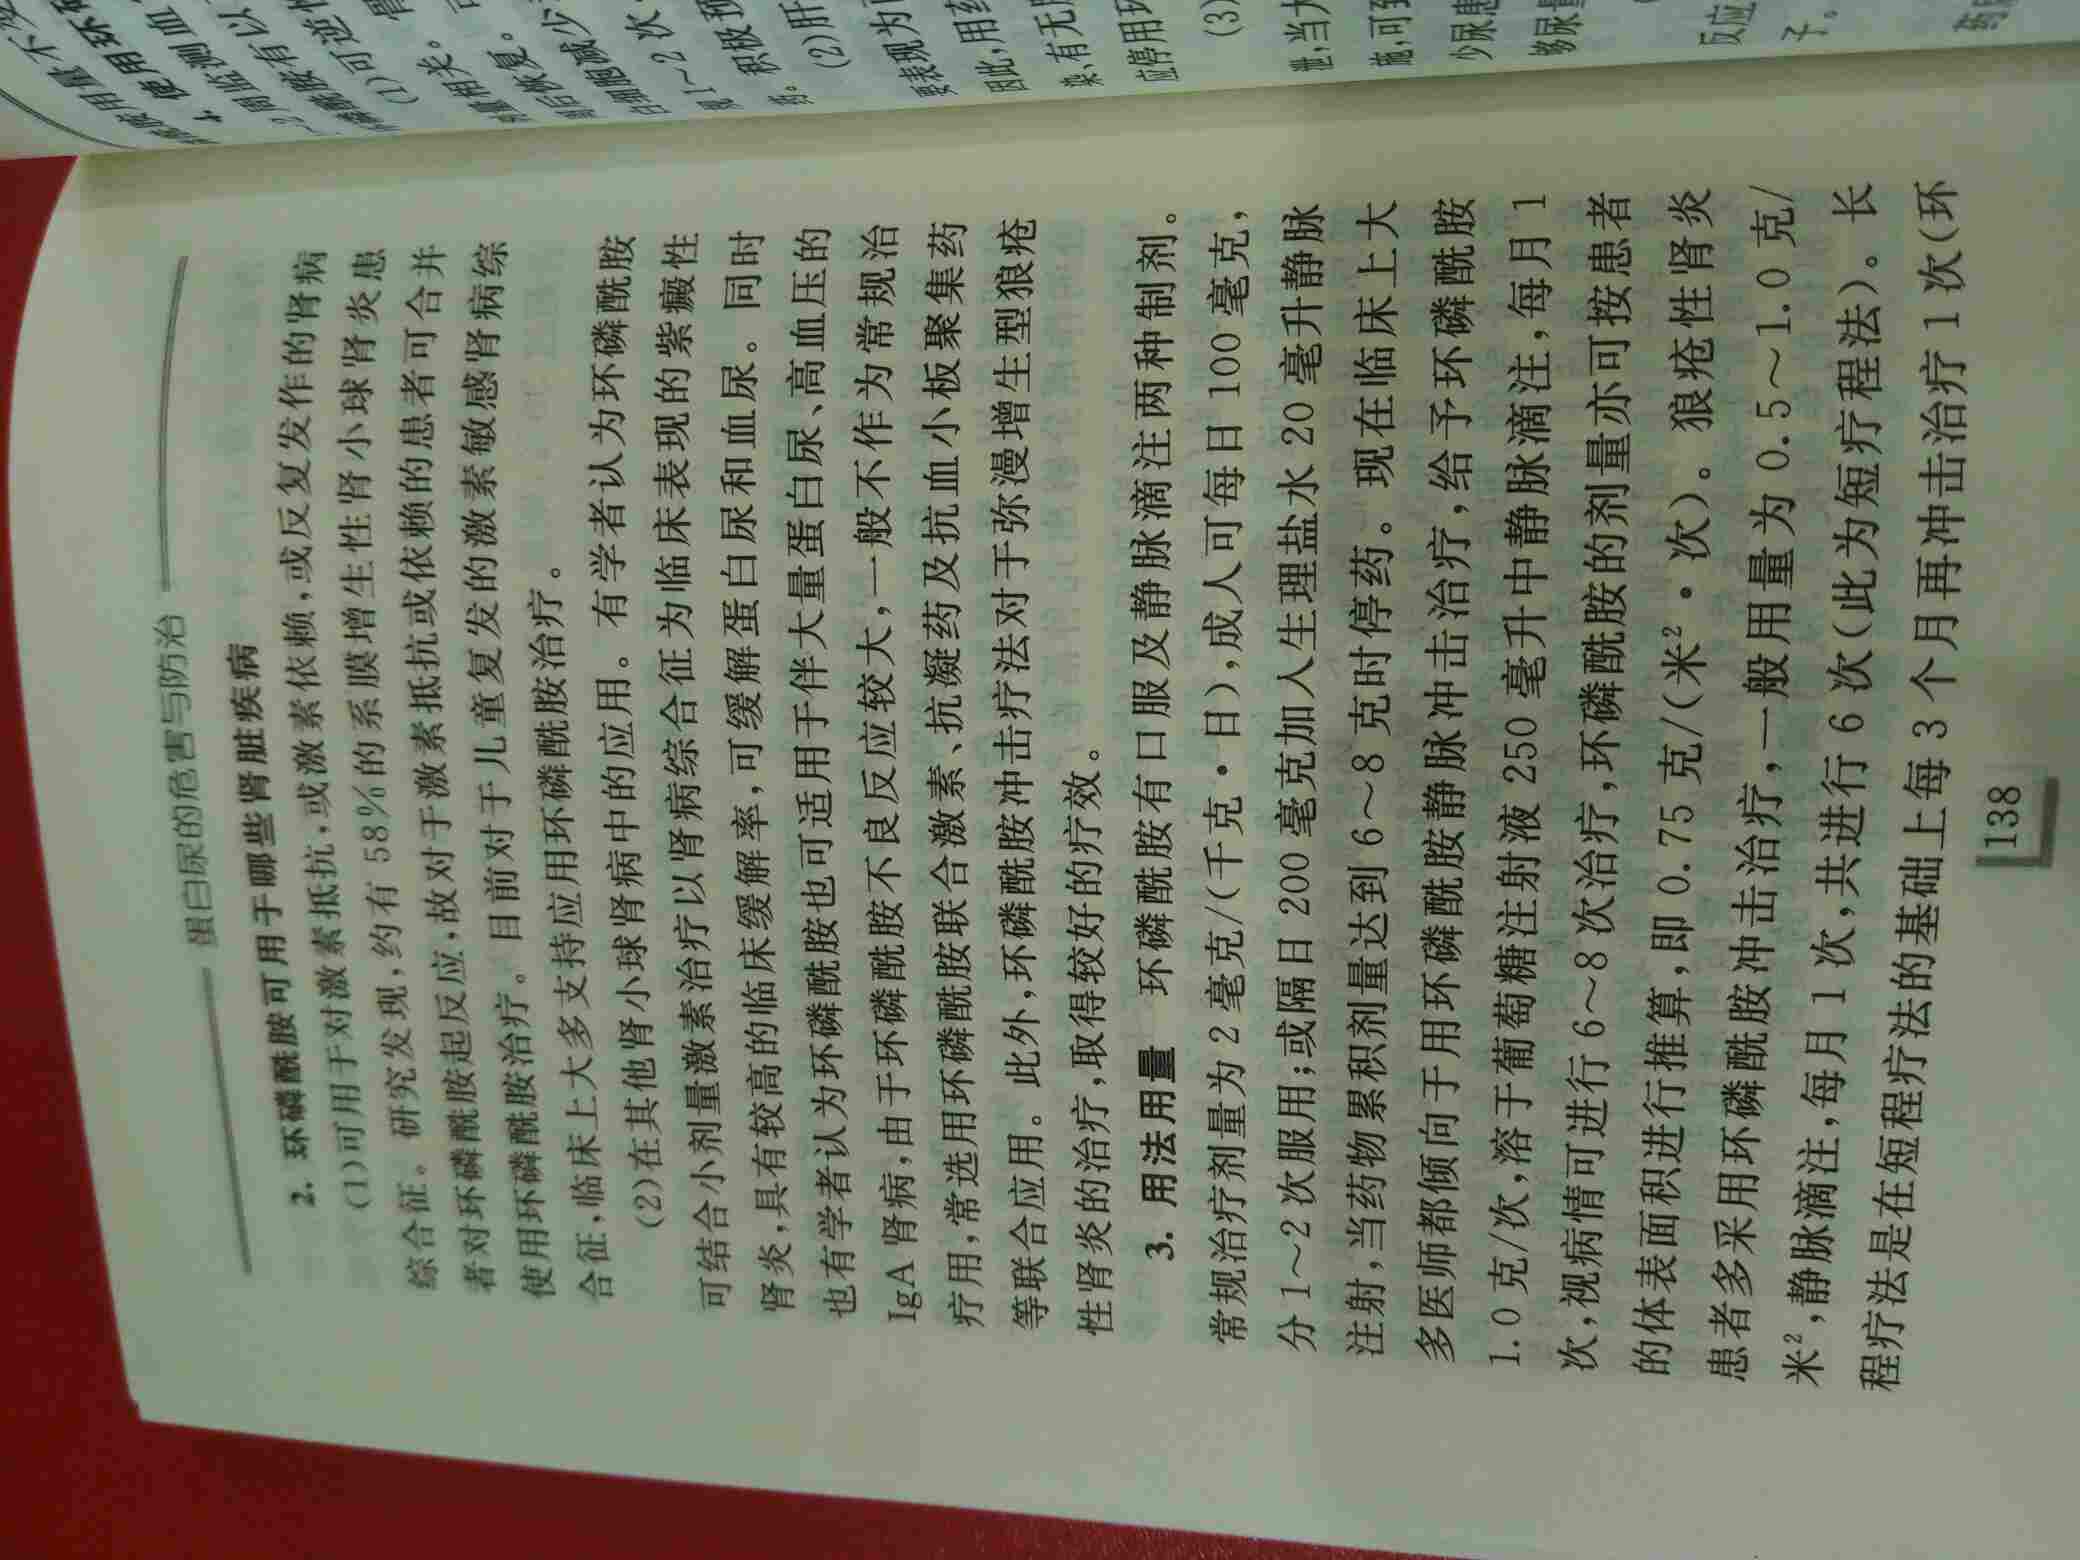 蛋白尿的危害与防治
2. 环磷酰胺可用于哪些肾脏疾病
(1)可用于对激素抵抗,或激素依赖,或反复发作的肾病
综合征。研究发现,约有 58%的系膜增生性肾小球肾炎患
者对环磷酰胺起反应,故对于激素抵抗或依赖的患者可合并
使用环磷酰胺治疗。目前对于儿童复发的激素敏感肾病综
合征,临床上大多支持应用环磷酰胺治疗。
(2)在其他肾小球肾病中的应用。有学者认为环磷酰胺
可结合小剂量激素治疗以肾病综合征为临床表现的紫癜性
肾炎,具有较高的临床缓解率,可缓解蛋白尿和血尿。同时
也有学者认为环磷酰胺也可适用于伴大量蛋白尿、高血压的
IgA 肾病,由于环磷酰胺不良反应较大,一般不作为常规治
疗用,常选用环磷酰胺联合激素、抗凝药及抗血小板聚集药
等联合应用。此外,环磷酰胺冲击疗法对于弥漫增生型狼疮
性肾炎的治疗,取得较好的疗效。
3. 用法用量 环磷酰胺有口服及静脉滴注两种制剂。
常规治疗剂量为 2 毫克/(千克·日),成人可每日 100 毫克,
分 1～2 次服用;或隔日 200 毫克加入生理盐水 20 毫升静脉
注射,当药物累积剂量达到 6～8 克时停药。现在临床上大
多医师都倾向于用环磷酰胺静脉冲击治疗,给予环磷酰胺
1.0 克/次,溶于葡萄糖注射液 250 毫升中静脉滴注,每月 1
次,视病情可进行 6～8 次治疗,环磷酰胺的剂量亦可按患者
的体表面积进行推算,即 0.75 克/(米²·次)。狼疮性肾炎
患者多采用环磷酰胺冲击治疗,一般用量为 0.5～1.0 克/
米²,静脉滴注,每月 1 次,共进行 6 次(此为短疗程法)。长
程疗法是在短程疗法的基础上每 3 个月再冲击治疗 1 次(环
138
(1)可逆性
相关。
后恢复。
白细胞减少
1～2 次
积极预
(2)肝
要表现为
因此,用药
染、有无
应停用环
(3)
泄,当大
施,可到
少尿患
够尿量
反应
子。